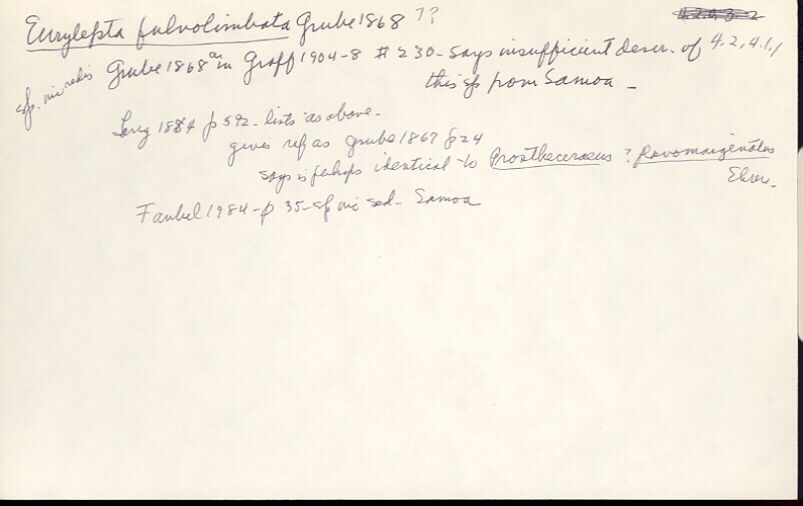 Eurylepta fulvolimbata Grube 1868 ??
sp. inc sedis Grube 1868 in Graff 1904-8 # 230 - says insufficient descr. of 4.2, 4.1.1
this sp from Samoa -
Lang 1884 p 592 - lists as above -
gives ref as Grube 1867 p 24
says is perhaps identical to Prostheceraeus ? flavomarginatus
Ehren.
Faubel 1984 - p 35 - sp inc sed - Samoa